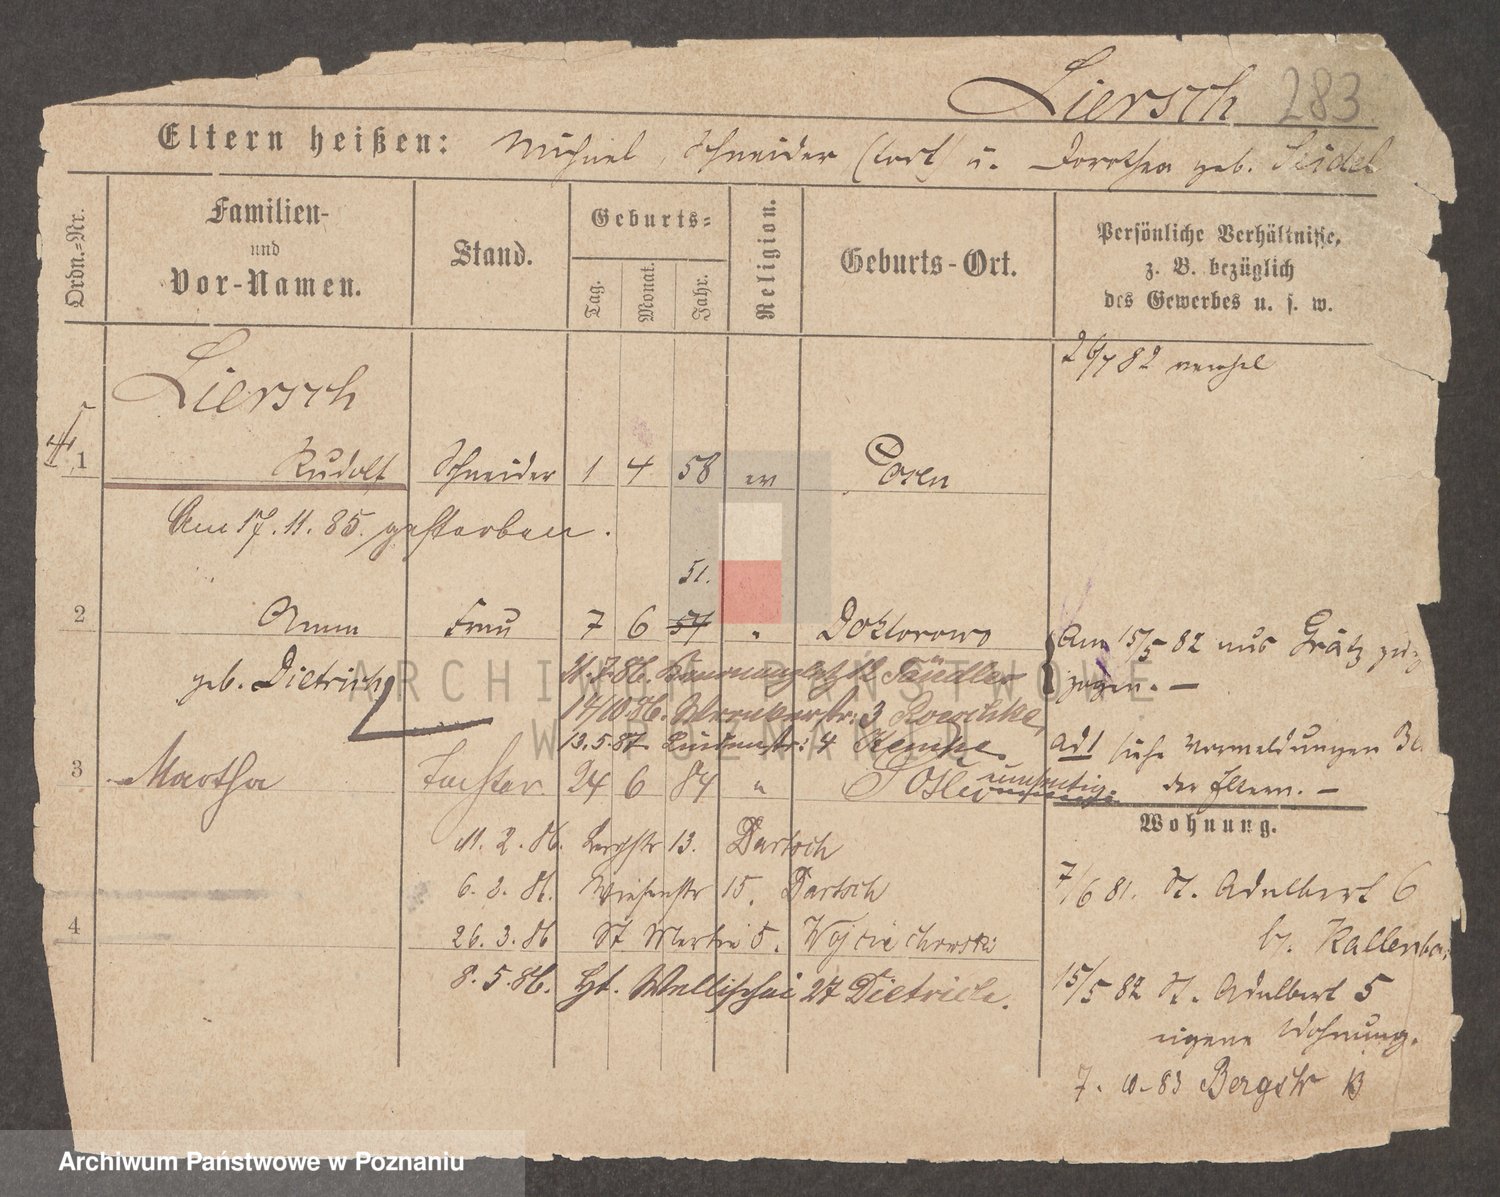 Liersch 283
Eltern heißen: Michael, Schneider (tot) u. Dorothea geb. Seidel
Ordn.-Nr.
Familien-
und
Vor-Namen.
Stand.
Geburts-
Tag.
Monat.
Jahr.
Religion.
Geburts-Ort.
Persönliche Verhältnisse,
z. B. bezüglich
des Gewerbes u. s. w.
Liersch
1 Rudolf Schneider 1 4 58 ev Posen
Am 17.11.85. gestorben.
51.
2 Anna Frau 7 6 54 " Doktorowo
geb. Dietrich
Am 15/5 82 aus Grätz
zogen. —
11.7.86. 12 Sändler
17/10 86. 3
13.5.87 4
3 Martha Tochter 24 6 84 " Posen unehelig.
ad 1 siehe Vermeldungen
der Eltern. —
Wohnung.
11. 2. 86. Bergstr 13. Bartsch
6. 3. 86. Wiesenstr 15. Bartsch
4 26. 3. 86 St Martin 5. Wojciechowski
8. 5. 86. Ht. Wallischei 27 Dietrich.
7/6 81. St. Adalbert 6
b.
15/5 82 St. Adalbert 5
eigene Wohnung.
7. 10. 83 Bergstr 13
ARCHIWUM PAŃSTWOWE
W POZNANIU
Archiwum Państwowe w Poznaniu